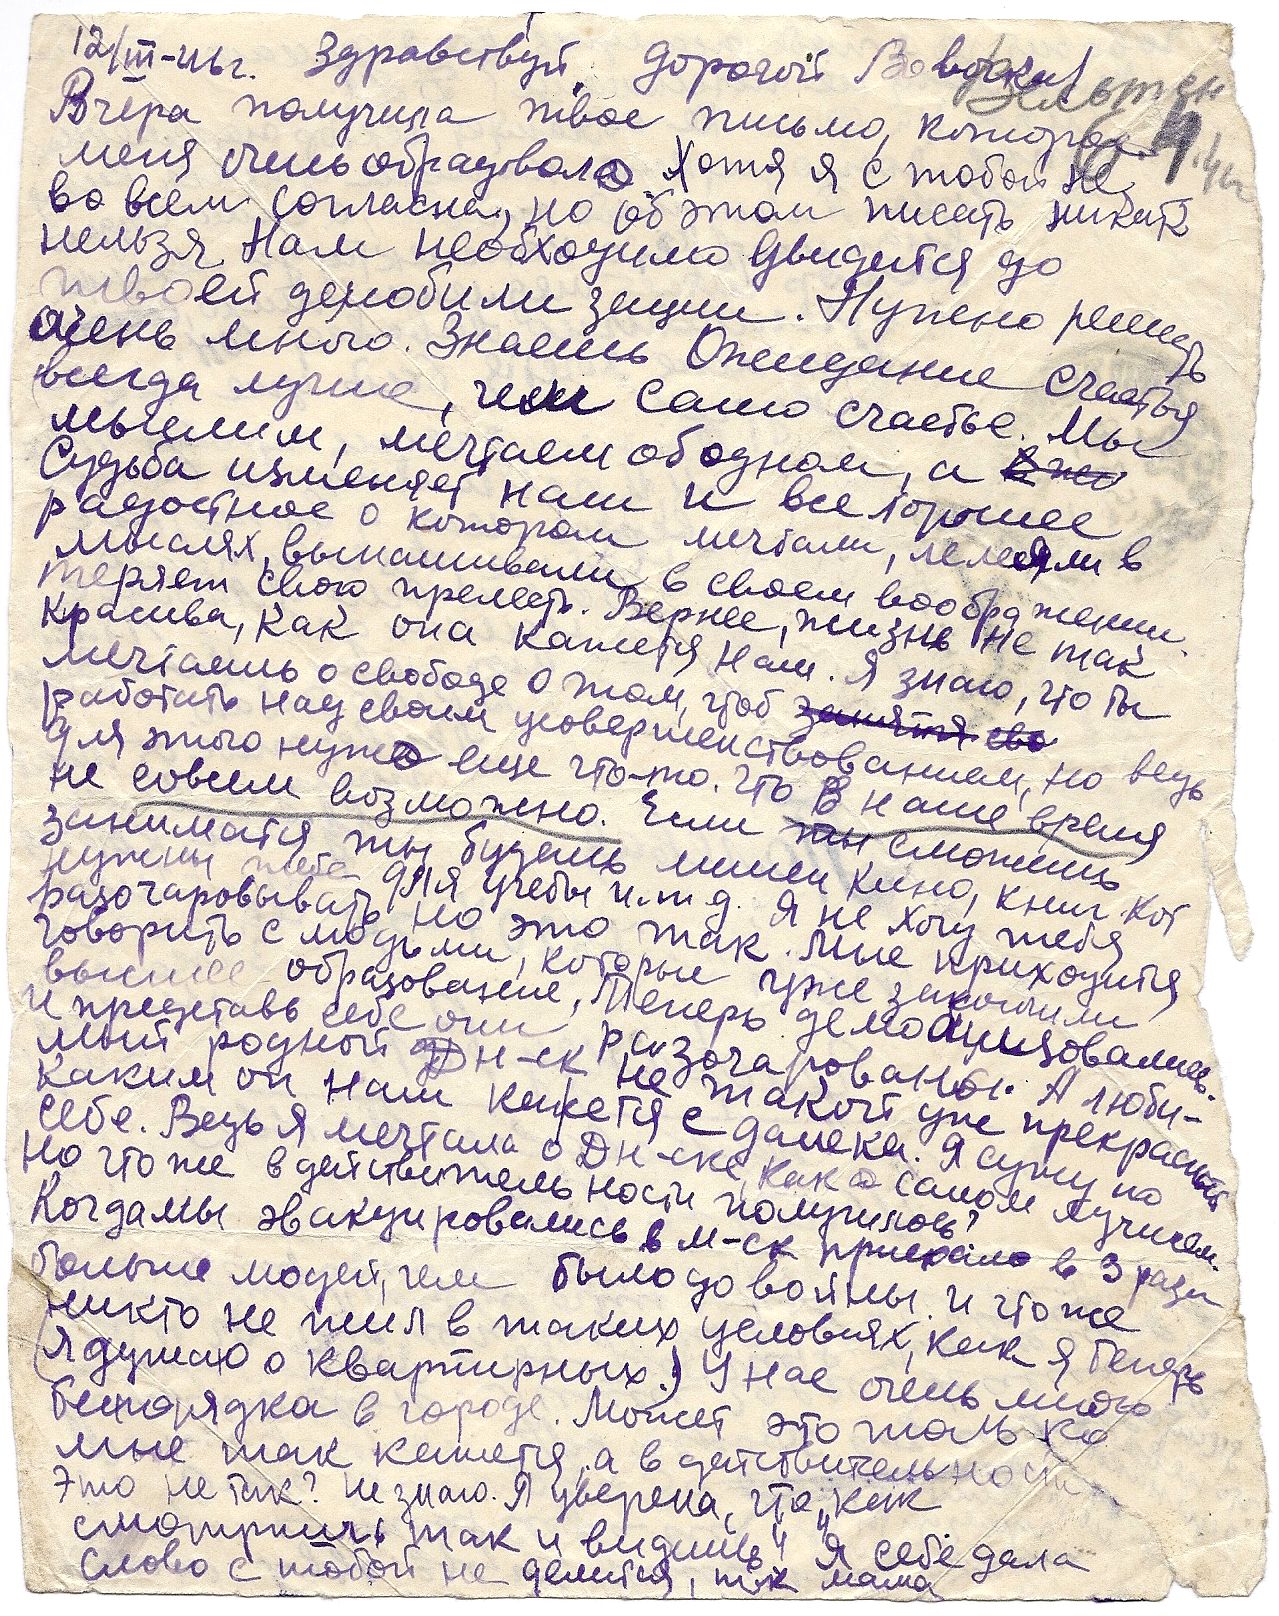 12/III-46г. Здравствуй дорогой Вовочка!
Вчера получила твое письмо, которое
меня очень обрадовало. Хотя я с тобой не
во всем согласна, но об этом писать никак
нельзя. Нам необходимо увидется до
твоей демобилизации. Нужно решать
очень много. Знаешь Ожидание счастья
всегда лучше, чем само счастье. Мы
мыслим, мечтаем об одном, а
Судьба изменяет нам и все хорошее
радостное о котором мечтали, лелеяли в
мыслях, вынашивали в своем воображении
теряет свою прелесть. Вернее, жизнь не так
красива, как она кажется нам. Я знаю, что ты
мечтаешь о свободе о том, чтоб занятся сво
работать над своим усовершенствованием, но ведь
для этого нужно еще что-то. Что в наше время
не совсем возможно. Если ты сможешь
заниматся ты будешь лишен кино, книг кот
нужны тебе для учебы и.т.д. Я не хочу тебя
разочаровывать но это так. Мне приходится
говорить с людьми, которые уже закончили
высшее образование, Теперь демобилизовались.
И представь себе они разочарованы. А люби-
мый родной Дн-ск не такой уж прекрасный
каким он нам кажется с далека. Я сужу по
себе. Ведь я мечтала о Дн-ске, как о самом лучшем.
Но что же в действительности получилось?
Когда мы эвакуировались в М-ск приехало в 3 раза
больше людей, чем было до войны. и что же
никто не жил в таких условиях, как я теперь
(Я думаю о квартирных.) У нас очень много
беспорядка в городе. Может это только
мне так кажется, а в действительности
это не так? не знаю. Я уверена, что „как
смотришь так и видишь" Я себе дала
слово с тобой не делится, т.к мама